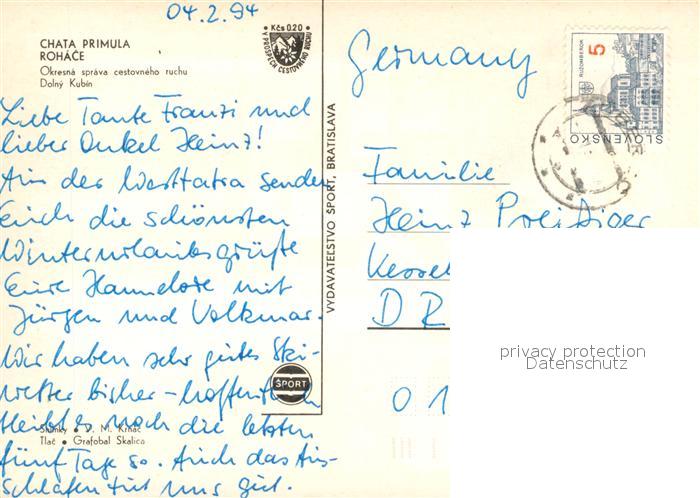 04.2.94
CHATA PRIMULA
ROHÁČE
Okresná správa cestovného ruchu
Dolný Kubín
Kčs 0,20
V PROSPECH CESTOVNÉHO RUCHU
Liebe Tante Franzi und
lieber Onkel Heinz!
Aus der Westtatra senden
Euch die schönsten
Winterurlaubsgrüße
Eure Hannelore mit
Jürgen und Volkmar.
Wir haben sehr gutes Ski-
wetter bisher - hoffentlich
bleibt es noch die letzten
fünf Tage so. Auch das Aus-
schlafen tut uns gut.
Snímky • M. Krnáč
Tlač • Grafobal Skalica
VYDAVATEĽSTVO ŠPORT, BRATISLAVA
ŠPORT
Germany
5
RUŽOMBEROK
SLOVENSKO
Familie
Heinz
Kessel
D R
0 1
privacy protection
Datenschutz